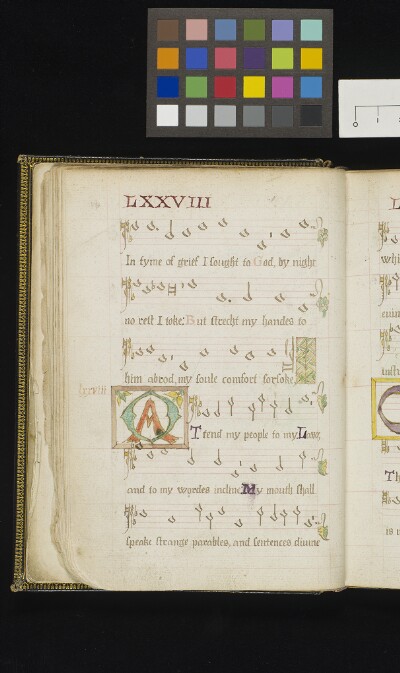 LXXVIII
In tyme of grief I sought to God, by night
no rest I toke: But strecht my handes to
him abrod, my soule comfort forsoke
lxxviii
A Ttend my people to my Law,
and to my wordes incline My mouth shall
speake strange parables, and sentences diuine
L
whi
Th
is
0 1